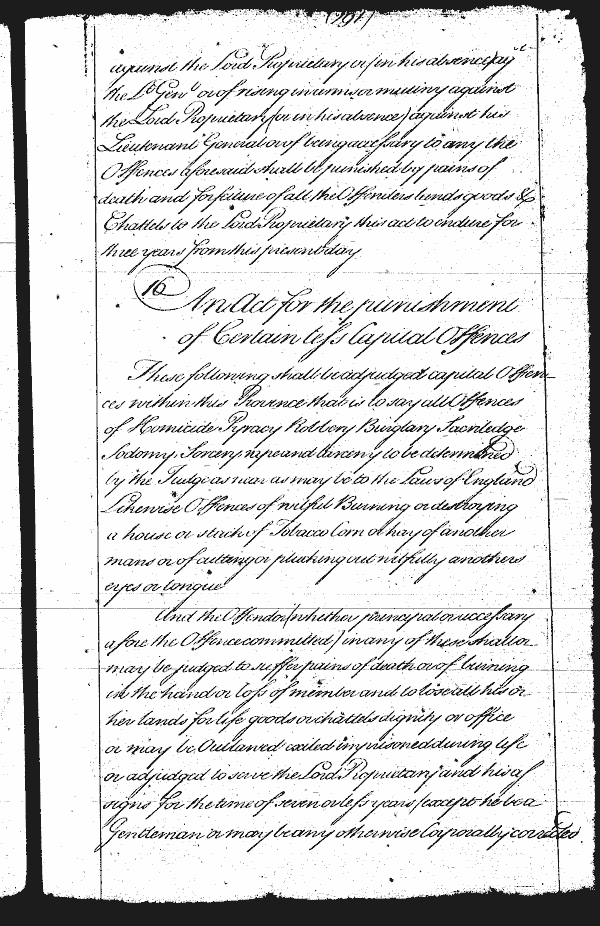 against the Lord Proprietary or (in his absence) ag
the Lt Genl or of rising in arms or mutiny against
the Lord Proprietary (or in his absence) against his
Lieutenant General or of being accessary to any the
Offences aforesaid shall be punished by pains of
death and forfeiture of all the Offenders lands goods &
Chattels to the Lord Proprietary this act to endure for
three years from this present day
16
An Act for the punishment
of Certain less Capital Offences
These following shall be adjudged capital Offen-
ces within this Province that is to say all Offences
of Homicide Pyracy Robbery Burglary Sacriledge
Sodomy Sorcery rape and larceny to be determined
by the Judge as near as may be to the Laws of England
Likewise Offences of wilful Burning or destroying
a house or stack of Tobacco Corn or hay of another
mans or of cutting or plucking out wilfully anothers
eyes or tongue
And the Offendor (whether principal or accessary
afore the Offence committed) in any of these shall or
may be judged to suffer pains of death or of burning
in the hand or loss of member and to lose all his or
her lands for life goods or chattels dignity or office
or may be Outlawed exiled imprisoned during life
or adjudged to serve the Lord Proprietary and his as
signs for the time of seven or less years (except he be a
Gentleman or may be any otherwise Corporally corrected